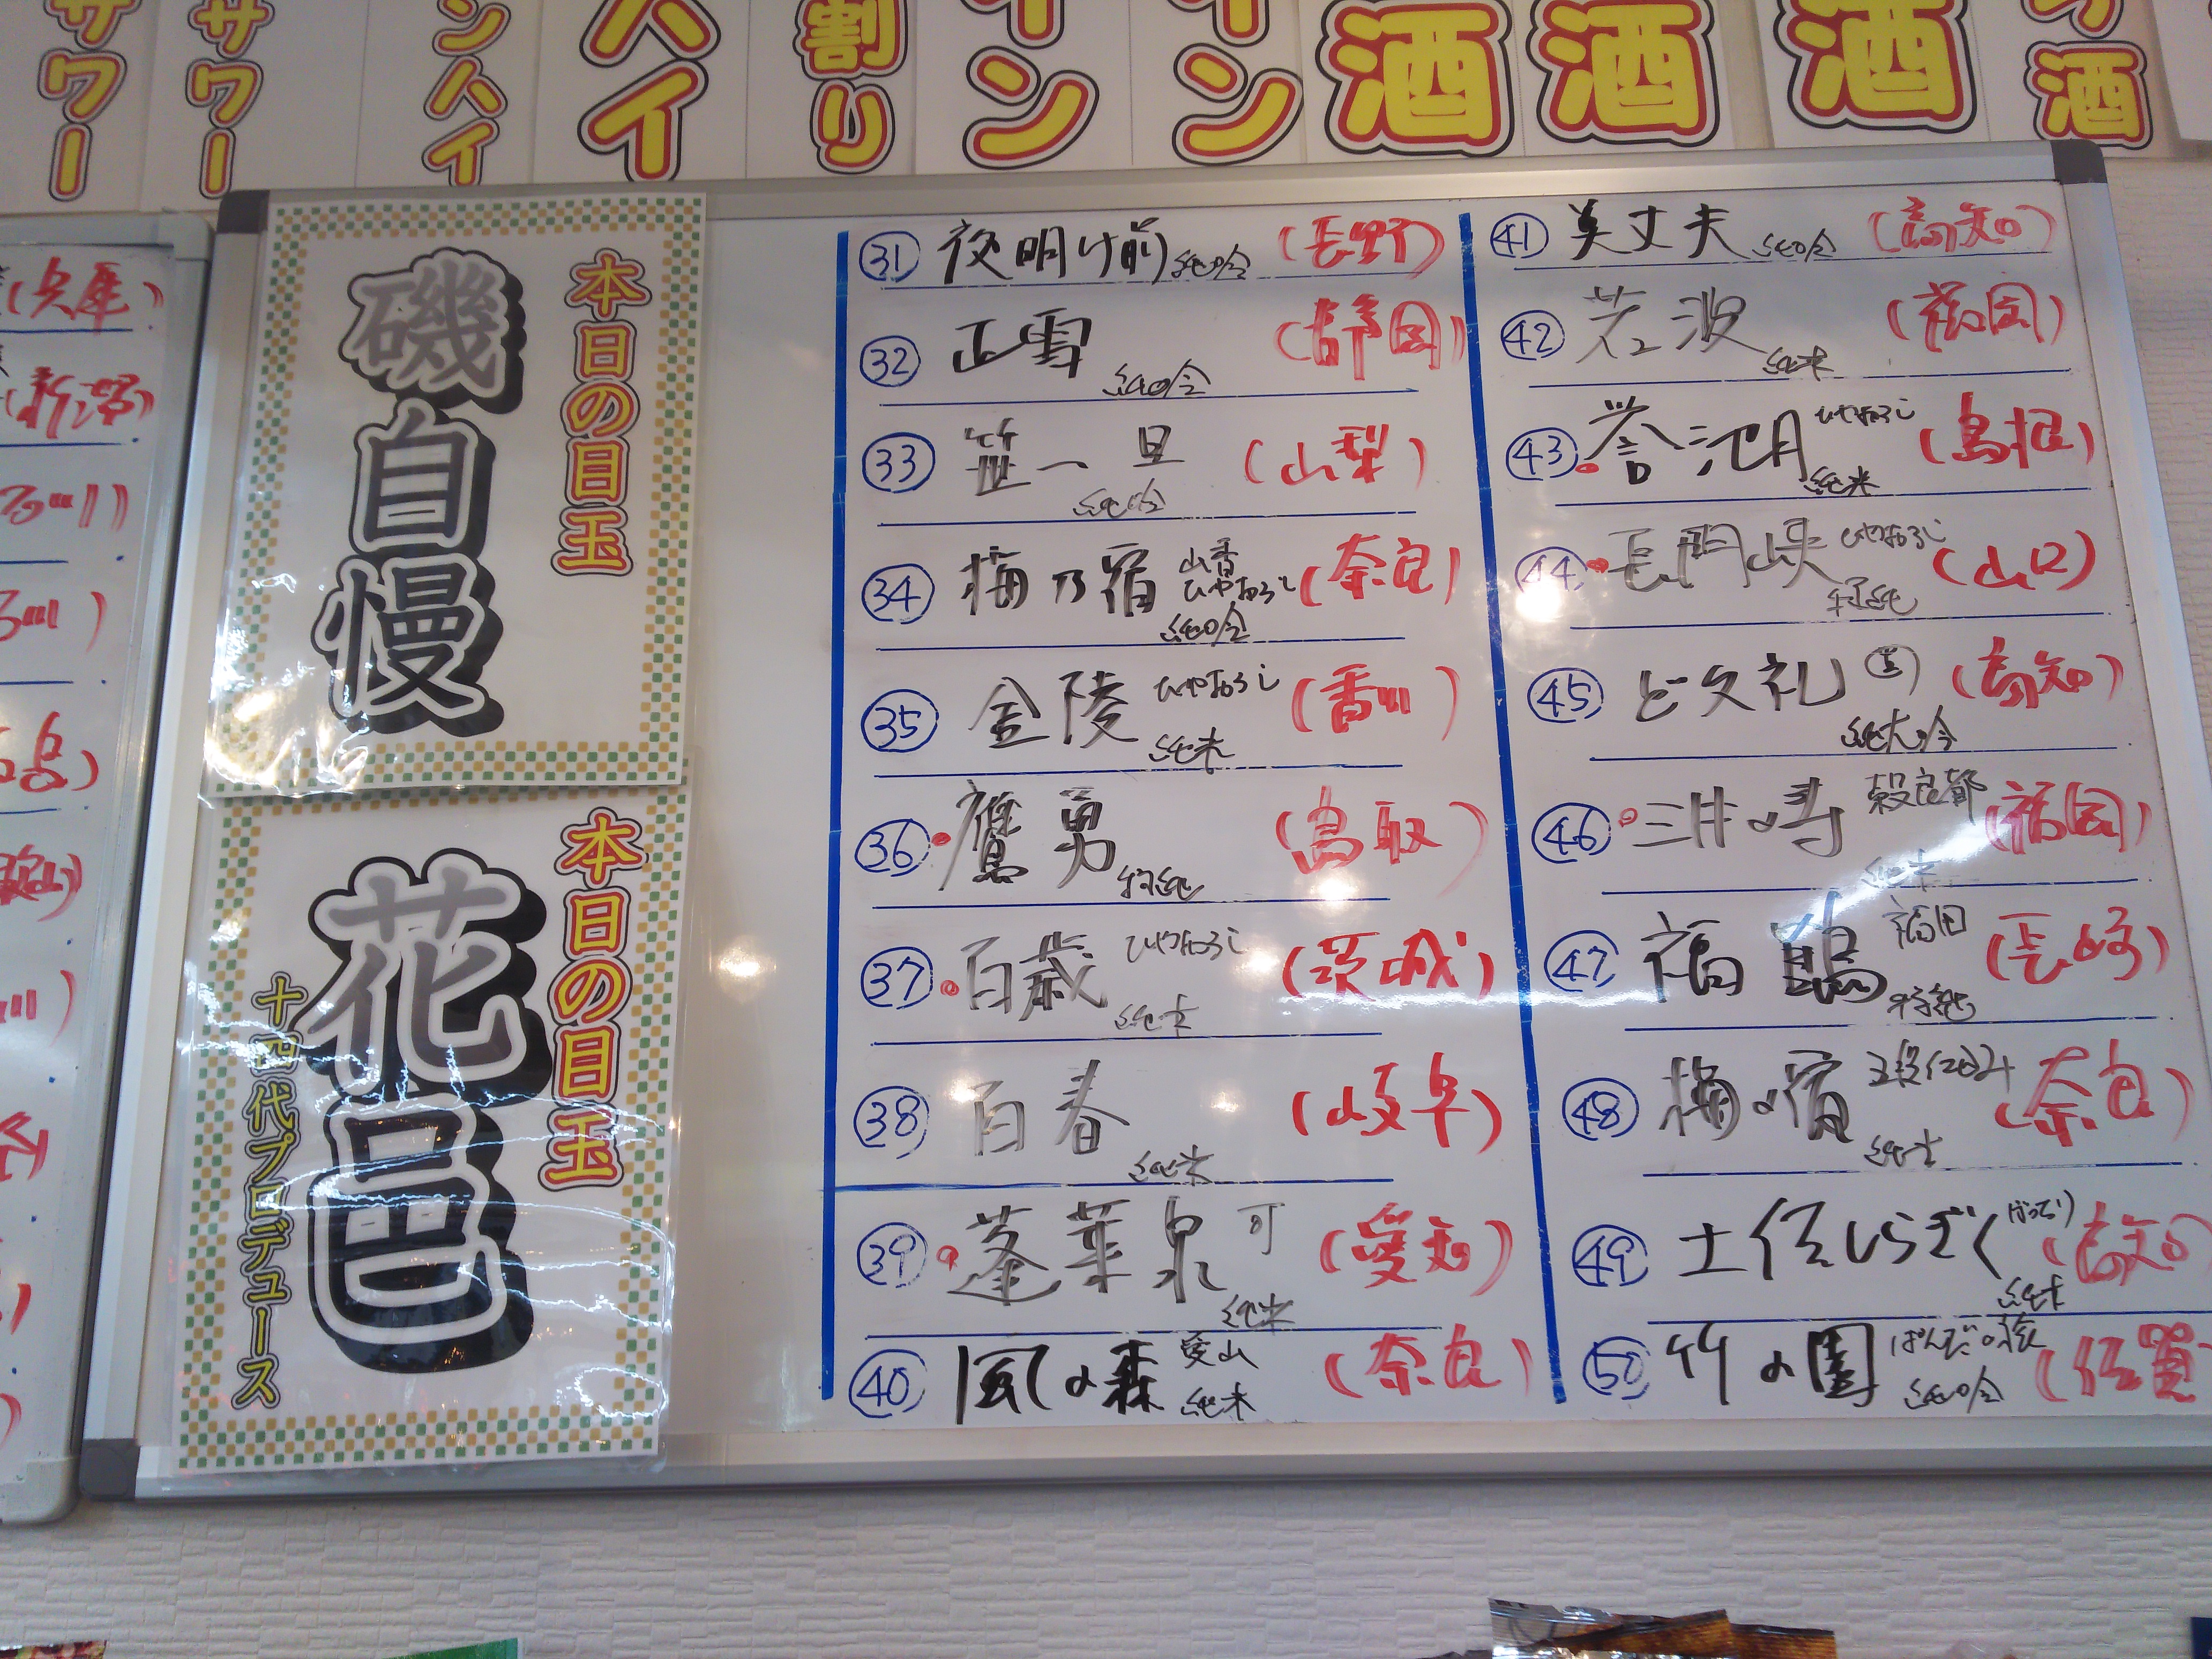 サワー
サワー
ンハイ
ハイ
割り
イン
イン
酒
酒
酒
酒
(兵庫)
(新潟)
本日の目玉
磯自慢
本日の目玉
花邑
十四代プロデュース
㉛ 夜明け前 純吟 (長野)
㉜ 正雪 純吟 (静岡)
㉝ 笹一 旦 純吟 (山梨)
㉞ 梅乃宿 山香 ひやおろし 純吟 (奈良)
㉟ 金陵 ひやおろし 純米 (香川)
㊱ 鷹勇 特純 (鳥取)
㊲ 百歳 ひやおろし 純米 (茨城)
㊳ 百春 純米 (岐阜)
㊴ 蓬莱泉 可 純米 (愛知)
㊵ 風の森 愛山 純米 (奈良)
㊶ 美丈夫 純吟 (高知)
㊷ 若波 純米 (福岡)
㊸ 誉池月 ひやおろし 純米 (島根)
㊹ 長門峡 ひやおろし 特純 (山口)
㊺ ど文礼 純大吟 (高知)
㊻ 三井の寿 穀良都 純米 (福岡)
㊼ 福鶴 福田 特純 (長崎)
㊽ 梅の宿 純米 (奈良)
㊾ 土佐しらぎく 純米 (高知)
㊿ 竹の園 純吟 (佐賀)